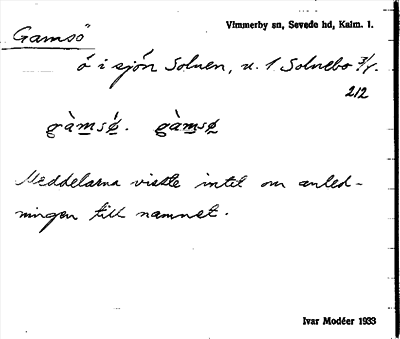 Vimmerby sn, Sevede hd, Kalm. l.
Gamsö
ö i sjön Solnen, n. 1 Solnebo 7/1.
212
gàmsǿ. gàmsø
Meddelarna visste intet om anled-
ningen till namnet.
Ivar Modéer 1933